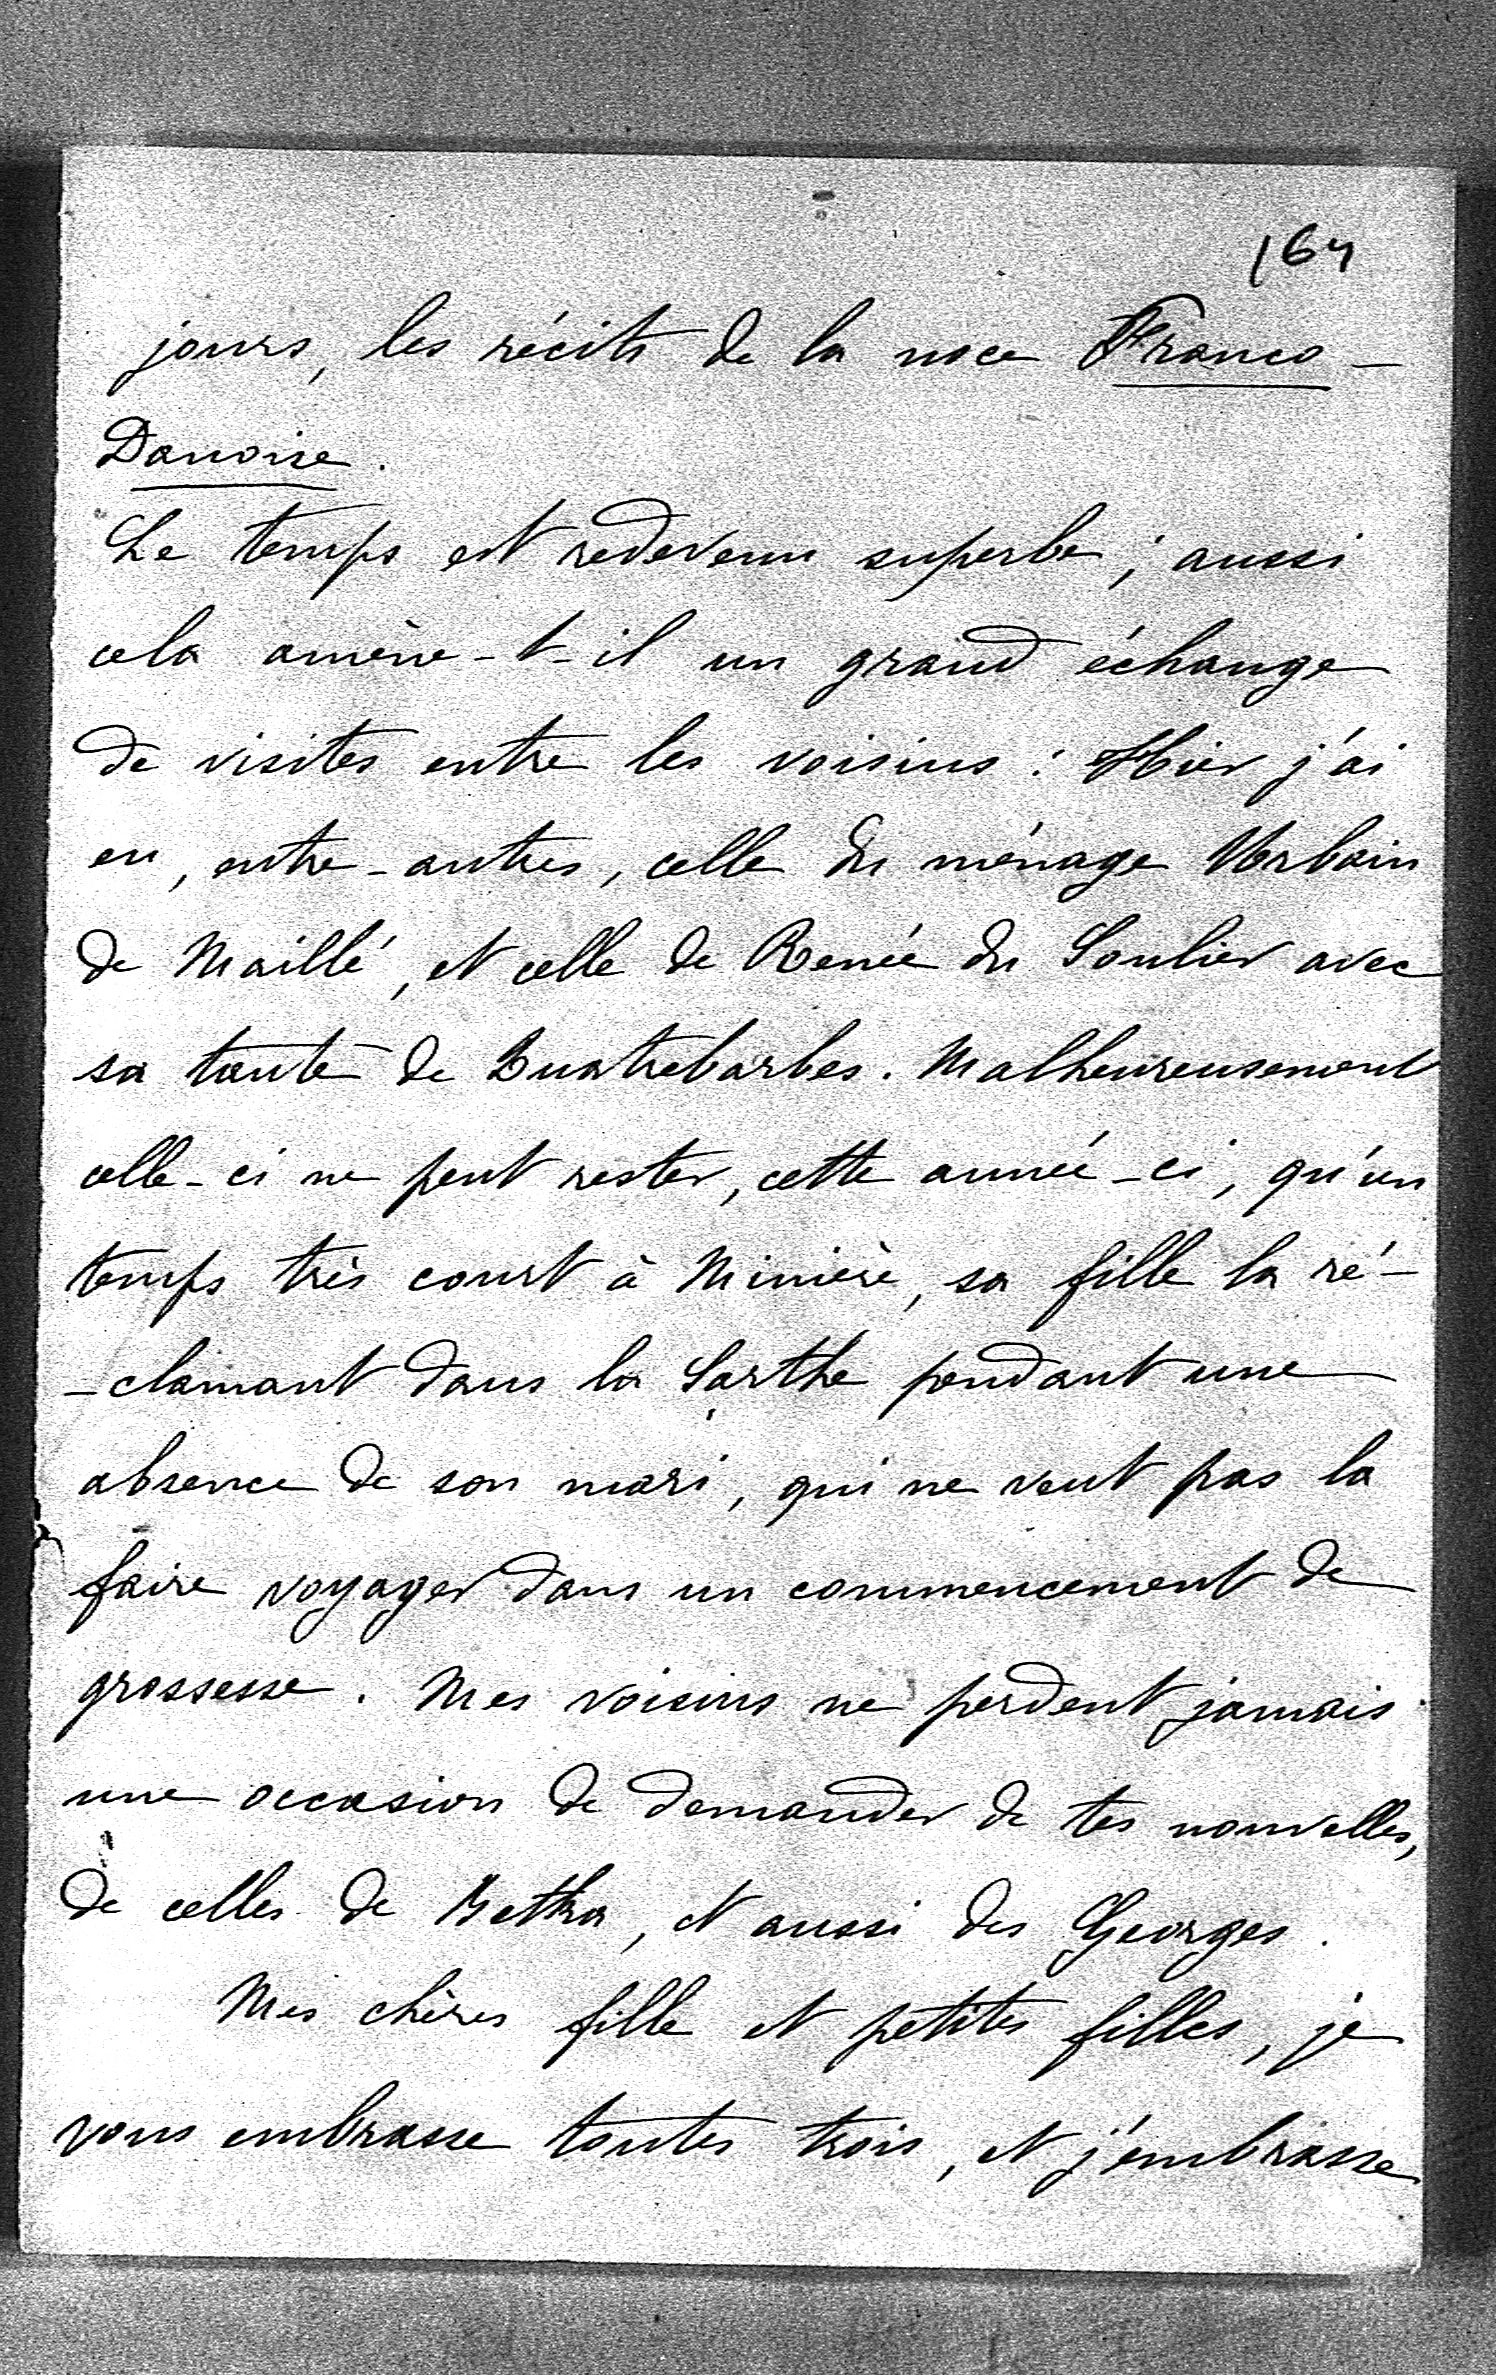 164
jours, les récits de la noce Franco-
Danoise.
Le temps est redevenu superbe ; aussi
cela amène-t-il un grand échange
de visites entre les voisins : Hier j'ai
eu, entre-autres, celle du ménage Urbain
de Maillé, et celle de Renée du Soulier avec
sa tante de Quatrebarbes. Malheureusement
celle-ci ne peut rester, cette année-ci, qu'un
temps très court à Minière, sa fille la ré-
-clamant dans la Sarthe pendant une
absence de son mari, qui ne veut pas la
faire voyager dans un commencement de
grossesse. Mes voisins ne perdent jamais
une occasion de demander de tes nouvelles,
de celles de Betka, et aussi des Georges.
Mes chères fille et petites filles, je
vous embrasse toutes trois, et j'embrasse